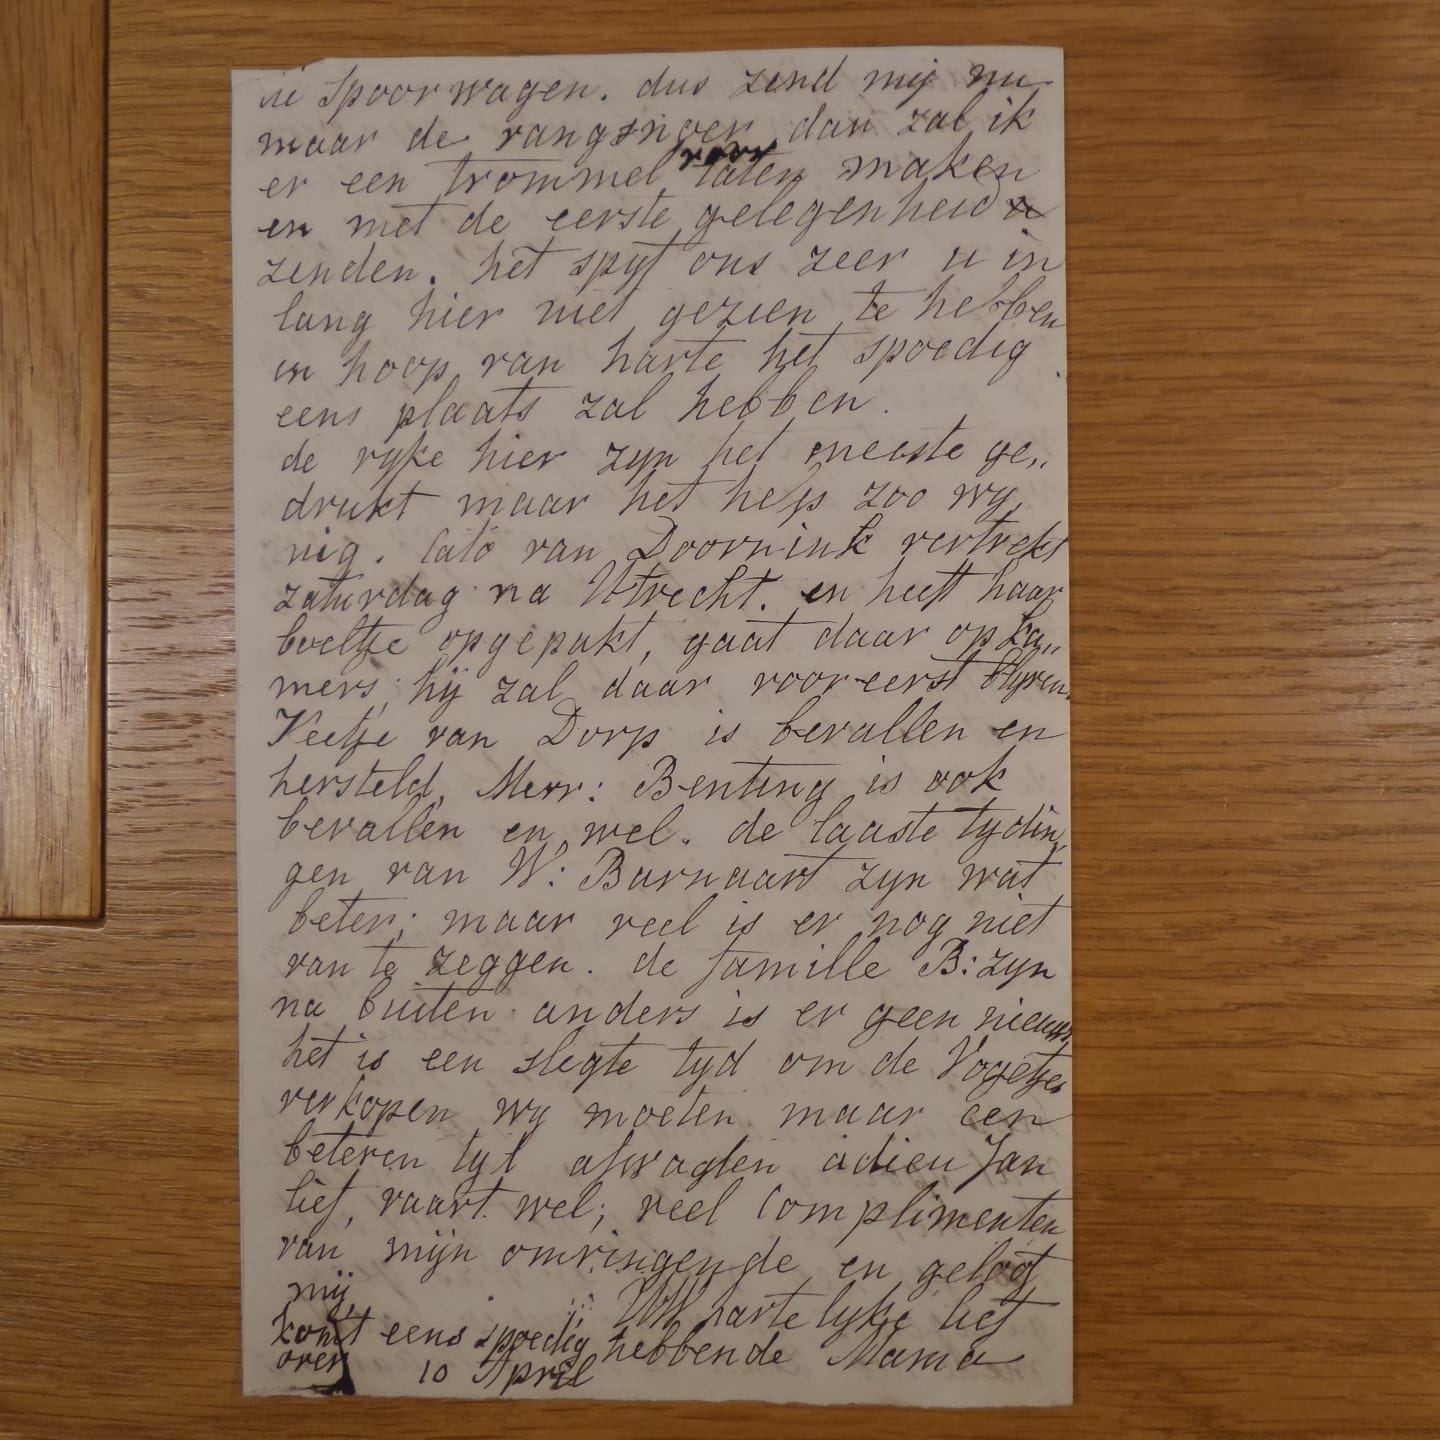 die Spoorwagen. dus zend mij nu
maar de vangsnoer dan zal ik
er een trommel voor laten maken
en met de eerste gelegenheid u
zenden. het spyt ons zeer u in
lang hier niet gezien te hebben
en hoop van harte het spoedig
eens plaats zal hebben.
de ryke hier zyn het meeste ge„
drukt maar het help zoo wy
nig. Cato van Doornink vertrekt
zaturdag na Utrecht. en heeft haar
boeltje opgepakt, gaat daar op ka„
mers, hij zal daar vooreerst blyven,
Keetje van Dorp is bevallen en
hersteld, Mevr: Benting is ook
bevallen en wel. de laaste tydin
gen van W: Barnaart zyn wat
beter; maar veel is er nog niet
van te zeggen. de famille B: zyn
na buiten anders is er geen nieuws,
het is een slegte tyd om de Vogetjes
verkopen wy moeten maar een
beteren tyt afwagten adieu Jan
lief, vaart wel; veel Complimenten
van mijn omringende en geloof
mij,
UW hartelyke lief
hebbende Mama
komt eens spoedig
over 10 April